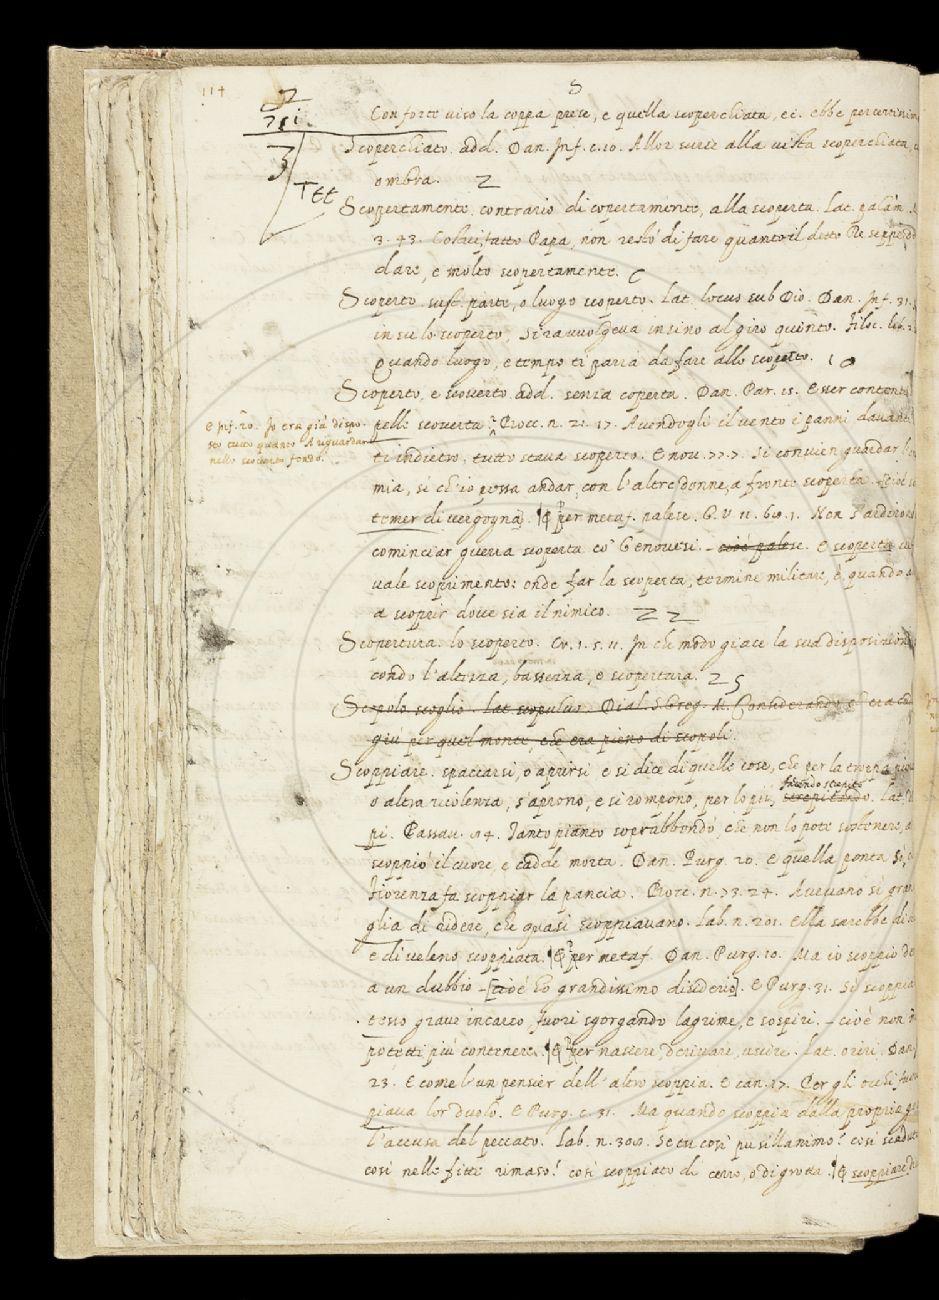 114
S
Con forte viso la coppa prese, e quella scoperchiata, ec. ebbe per certissimo
Scoperchiato. add. Dan. Inf. c. 10. Allor surse alla vista scoperchiata,
ombra. 2
Scopertamente. contrario di copertamente, alla scoperta. Lat. palàm.
3. 43. Costui, fatto Papa, non restò di fare quanto il detto Re seppe
dare, e molto scopertamente.
Scoperto. sust. parte, o luogo scoperto. Lat. locus sub Dio. Dan. Inf. 31.
in su lo scoperto, Si ravvolgeva insino al giro quinto. Filoc. lib. 2.
Quando luogo, e tempo ti parrà da fare allo scoperto. 10
Scoperto, e scoverto. add. senza coperta. Dan. Par. 15. Esser contenti
pelle scoverta Bocc. n. 21. 17. Avendogli il vento i panni davanti
e Inf. 20. Io era già dispo-
sto tutto quanto A riguardar
nello scoverto fondo.
ti indietro, tutto stava scoperto. E nov. 77. 7. Si convien guardar
mia, si ch'io possa andar, con l'altre donne, a fronte scoperta. cioè
temer di vergogna. per metaf. palese. G. V. 11. 60. 1. Non s'ardirono
cominciar guerra scoperta co' Genovesi. - cioè palese. E scoperta
vale scoprimento: onde far la scoperta, termine militare, è quando
a scoprir dove sia il nimico. 22
Scopertura. lo scoperto. Cr. 1. 5. 11. In che modo giace la sua disposizione
condo l'altezza, bassezza, e scopertura. 25
Scopolo. scoglio. Lat. scopulus. Dial. S. Greg. M. Considerando
giù per quel monte, che era pieno di scopoli.
Scoppiare. spaccarsi, o aprirsi e si dice di quelle cose, che per la troppa
facendo strepito
o altra violenza, s'aprono, e si rompono, per lo più, strepitando. Lat.
pi. Passav. 54. Tanto pianto soprabbondò, che non lo potè sostenere,
scoppiò il cuore, e cadde morta. Dan. Purg. 20. E quella ponta sì,
Fiorenza fa scoppiar la pancia. Bocc. n. 73. 24. Avevano sì gran
glia di ridere, che quasi scoppiavano. Lab. n. 201. Ella sarebbe di
e di veleno scoppiata. per metaf. Dan. Purg. 10. Ma io scoppio
a un dubbio - [cioè ho grandissimo disiderio]. E Purg. 31. Sì scoppia
esso grave incarco, fuori sgorgando lagrime, e sospiri. - cioè non
potetti più contenere. per nascere, derivare, uscire. Lat. oriri. Dan.
23. E come l'un pensier dell'altro scoppia. E can. 17. Per gli occhi, fuori
piava lor duolo. E Purg. c. 31. Ma quando scoppia dalla propria
l'accusa del peccato. Lab. n. 300. Se tu così pusillanimo! così
così nelle fitte rimaso! così scoppiato di cerro, o di grotta. scoppiare